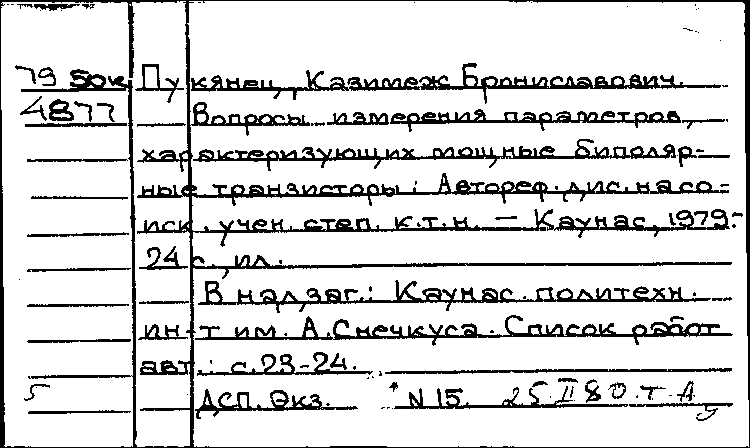 79 50к Пукянец, Казимеж Брониславович.
4877 Вопросы измерения параметров,
характеризующих мощные биполяр-
ные транзисторы: Автореф. дис. на со-
иск. учен. степ. к.т.н. — Каунас, 1979.-
24 с., ил.
В надзаг.: Каунас. политехн.
ин-т им. А. Снечкуса. Список работ
авт.: с. 23-24.
5 ДСП. Экз. * N 15. 25 II 80. Т. А